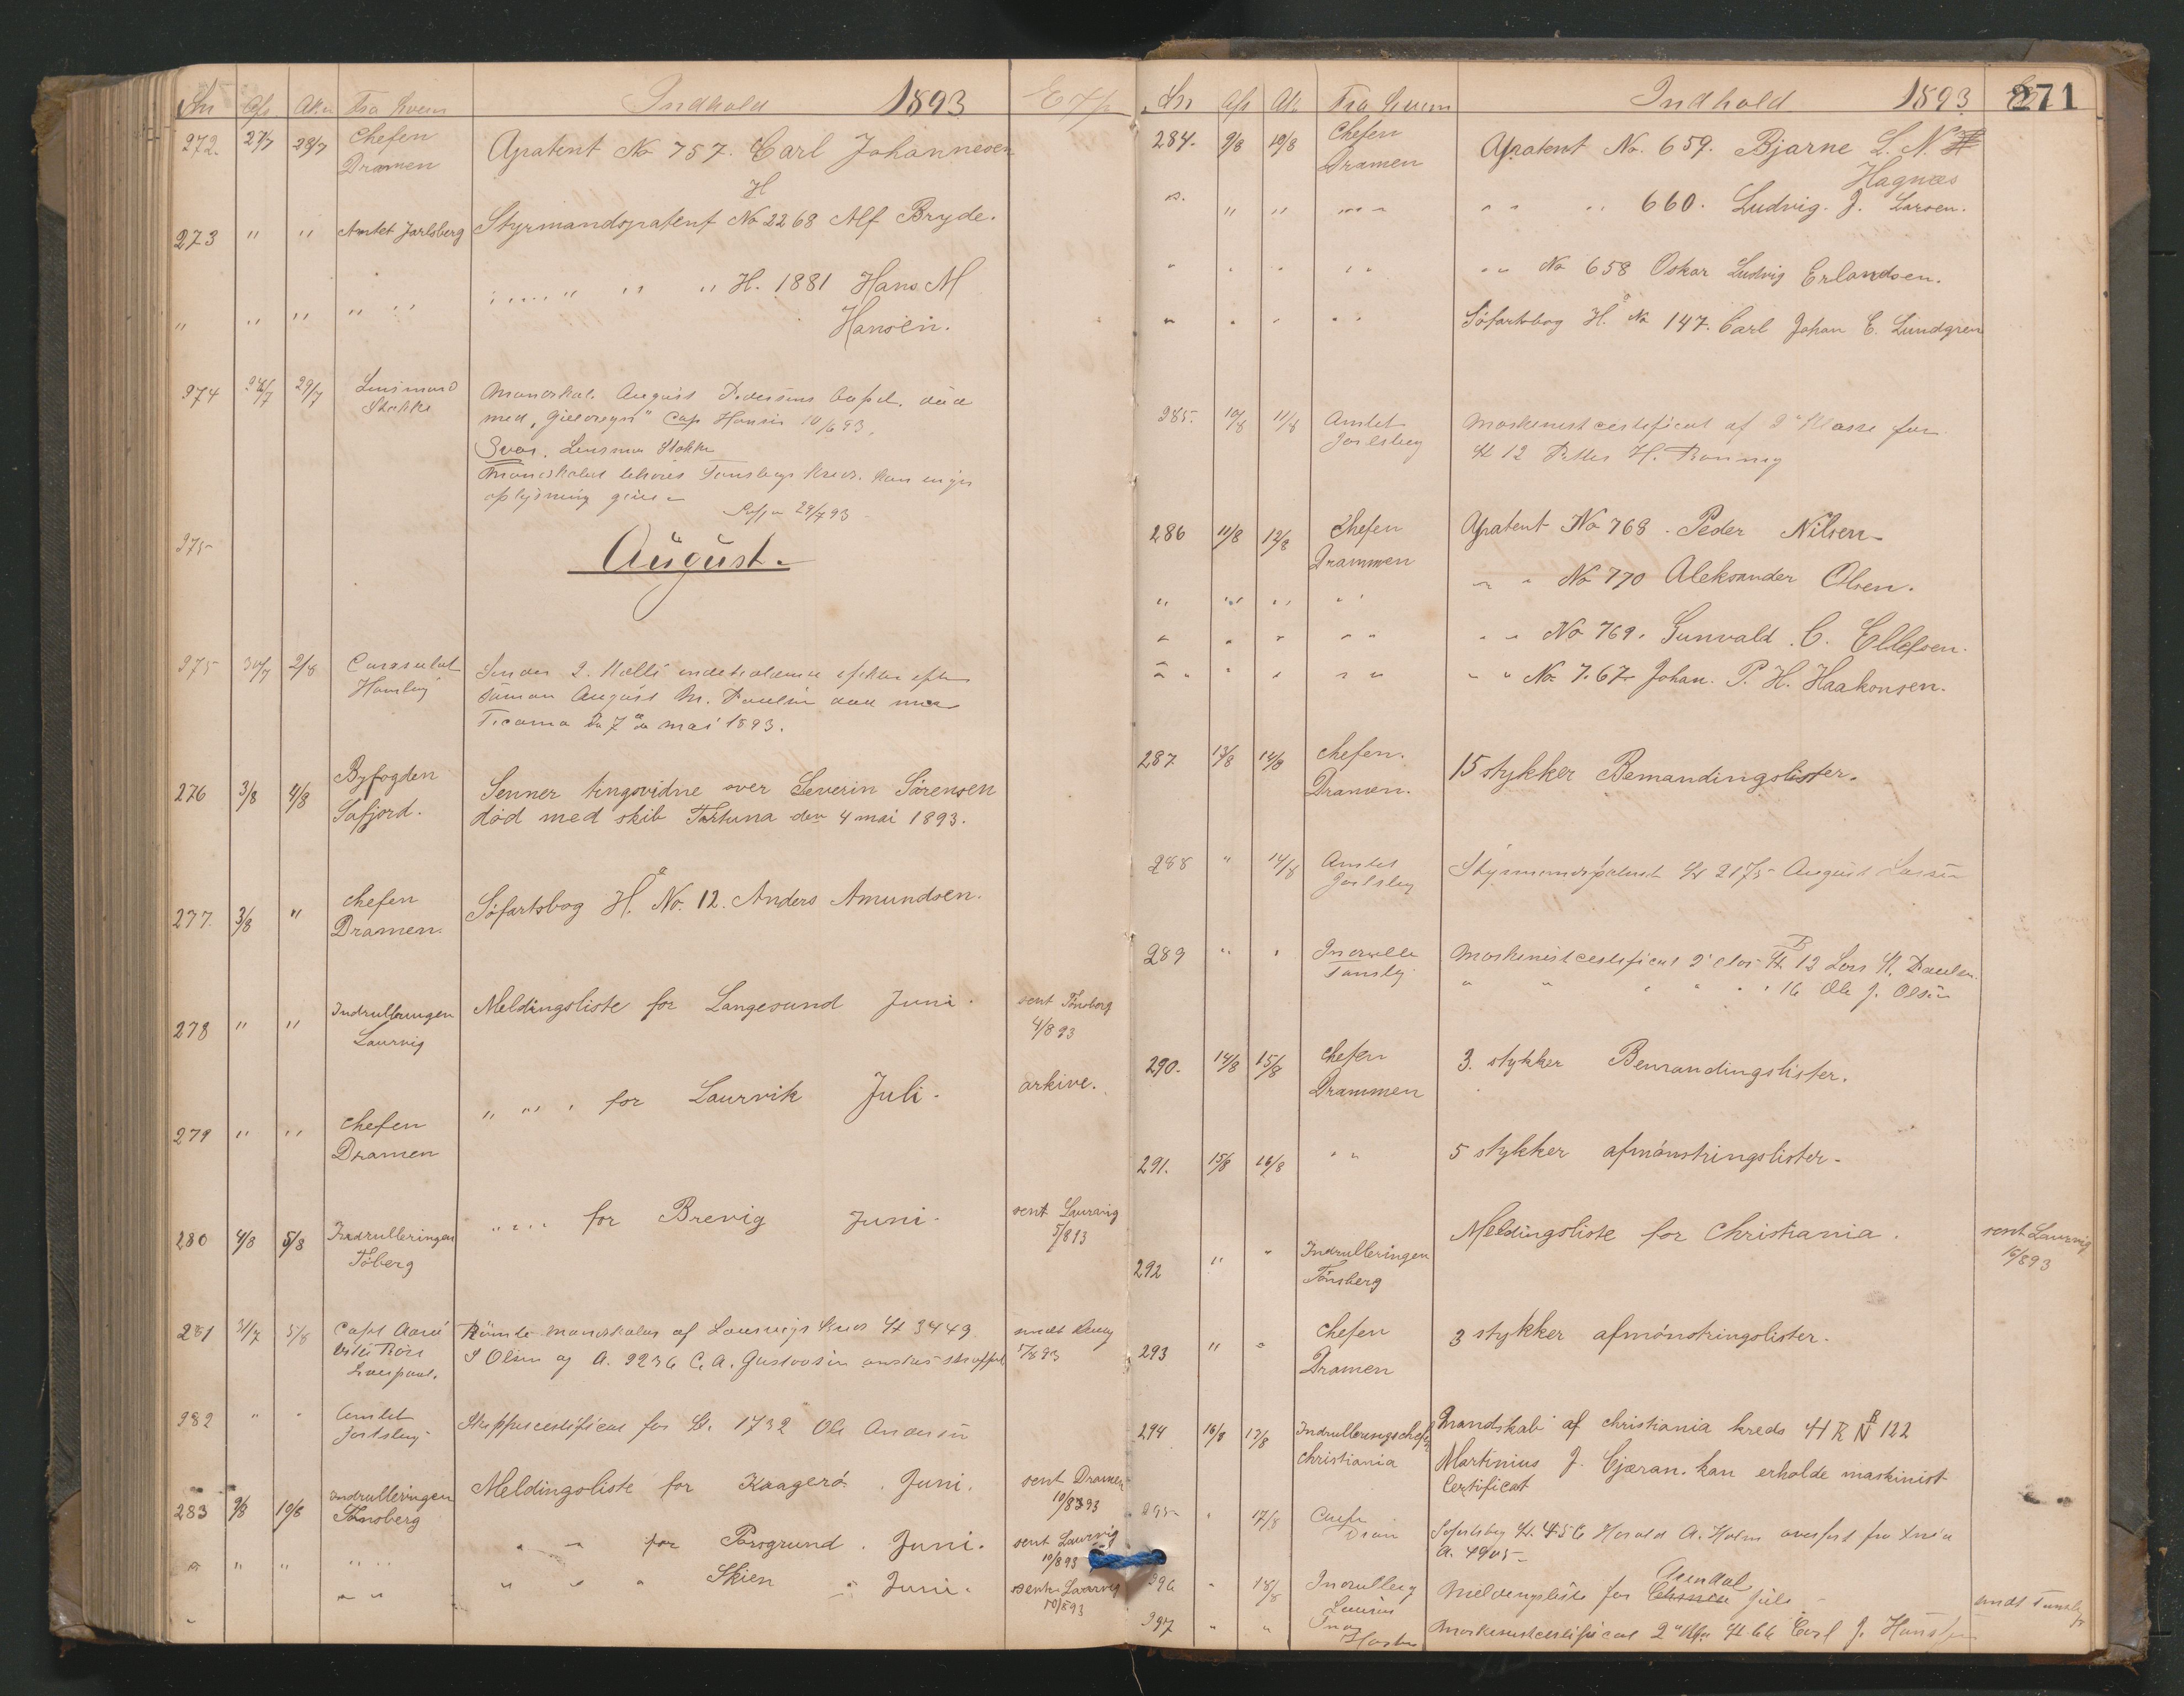 Jnr Afs Ank Fra hvem Indhold 1893 Exp
272. 27/7 28/7 Chefen Dramen Apatent No 757. Carl Johannesen
H
273 " " Amtet Jarlsberg Styrmandspatent No 2268 Alf Bryde.
" " " " " " " " H. 1881 Hans M
Hansen.
274 28/7 29/7 Lensmand Stokke Mandskab August Pedersens Capt. død
med Cap Hansen 10/6 93.
Svar. Lensman Stokke
Mandskabet Tønsbergs Kreds. Kan ingen
oplysning give
29/7 93
275
August.
275 30/7 2/8 Consulat Hamburg Sender 2 Kolli indeholdende efekter efter
Søman August M. Paulsen død med
Ticoma den 7de mai 1893.
276 3/8 4/8 Byfogden Søfjord. Senner tingsvidne over Severin Sørensen
død med skib Fortuna den 4 mai 1893.
277. 3/8 " Chefen Dramen. Søfartsbog H. No. 12. Anders Amundsen.
278 " " Indrulleringen Laurvig Meldingsliste for Langesund Juni. sent Tønsberg
4/8 93
279 " " Chefen Dramen " " " for Laurvik Juli. arkive.
280 4/8 5/8 Indrulleringen Töberg " " " for Brevig Juni. sent Laurvig
5/8 93
281 31/7 5/8 Capt Rømte mandskaber af Laurvigs Kreds H 3449
S Olsen og A. 2236 C. A. Gustavsen 5/8 93
282 " " Amtet Jarlsberg Skippercertificat for H. 1732 Ole Andersen
283 9/8 10/8 Indrulleringen Tönsberg Meldingsliste for Kragerø. Juni. sent Dramen
10/8 93
" " " " " " " for Porsgrund. Juni. sent Laurvig
10/8 93
" " " " " " Skien " Juni. sent Laurvig
10/8 93
Jnr Afs Ank Fra hvem Indhold 1893 271
284. 9/8 10/8 Chefen Dramen Apatent No. 659. Bjarne L. N.
Hagnæs
" " " " " " " " 660. Ludvig. J. Larsen.
" " " " " " " No 658 Oskar Ludvig Erlandsen.
" " " " " Søfartsbog H. No 147. Carl Johan E. Lundgren
285. 10/8 11/8 Amtet Jarlsberg Maskinistcertificat af 2 Klasse for
H 12 Petter H. Ronning
286 11/8 12/8 Chefen Drammen Apatent No 768. Peder Nilsen
" " " " " " " No 770 Aleksander Olsen.
" " " " " " " No 769. Gunvald. C. Ellefsen.
" " " " " " " No 767 Johan. P. H. Haakonsen.
287 13/8 14/8 Chefen. Dramen. 15 stykker Bemandingslister.
288 " 14/8 Amtet Jarlsberg Styrmandspatent H 2175 August Larsen
289 " " Tønsberg Maskinistcertificat 2 Clas H 12 Lars K. Paulsen
" " " " " " 16 Ole J. Olsen
290. 14/8 15/8 Chefen Drammen 3. stykker Bemandingslister.
291. 15/8 16/8 " " 5 stykker afmönstringslister.
292 " " Indrulleringen Tönsberg Meldingsliste for Christiania. sent Laurvig
16/8 93
293 " " Chefen Dramen 3 stykker afmönstringslister.
294 16/8 17/8 Indrulleringschefen Christiania Mandskab af christiania kreds H R N 122
Martinius J. Gjæran. kan erholde maskinist
Certificat
295 " 17/8 Chefen Dram Søfartsbog H. 456 Harald A. Holm overført fra
A. 4905
296 " 18/8 Indrullering Laurvig Meldingsliste for Arendal juli sendt Tønsberg
297 " " Maskinistcertificat 2 H 66 Carl J. Hansen